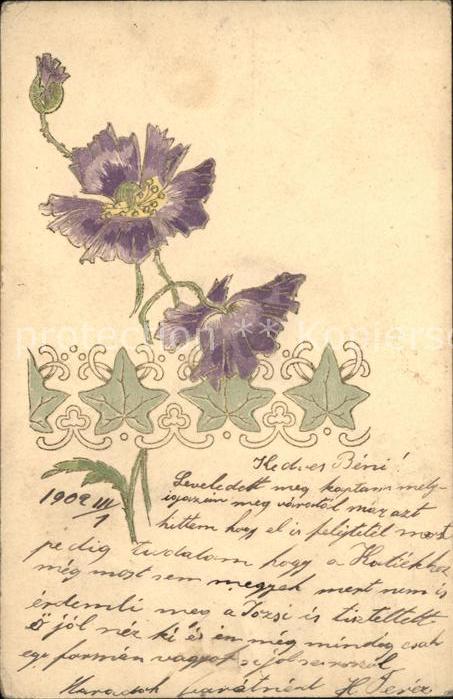 protection ** Kopiersc
Kedves Béni!
Leveledett meg kaptam mely-
igazán meg várattál már azt
hittem hogy el is felejtetél most
1902 III/1
pedig tudatom hogy a
még most sem megyek mert nem is
érdemli meg a Józsi is tisztellett
ő jól néz ki és én még mindég csak
egy formán vagyok se jól se rosszúl
Maradok barátnéd H Teréz